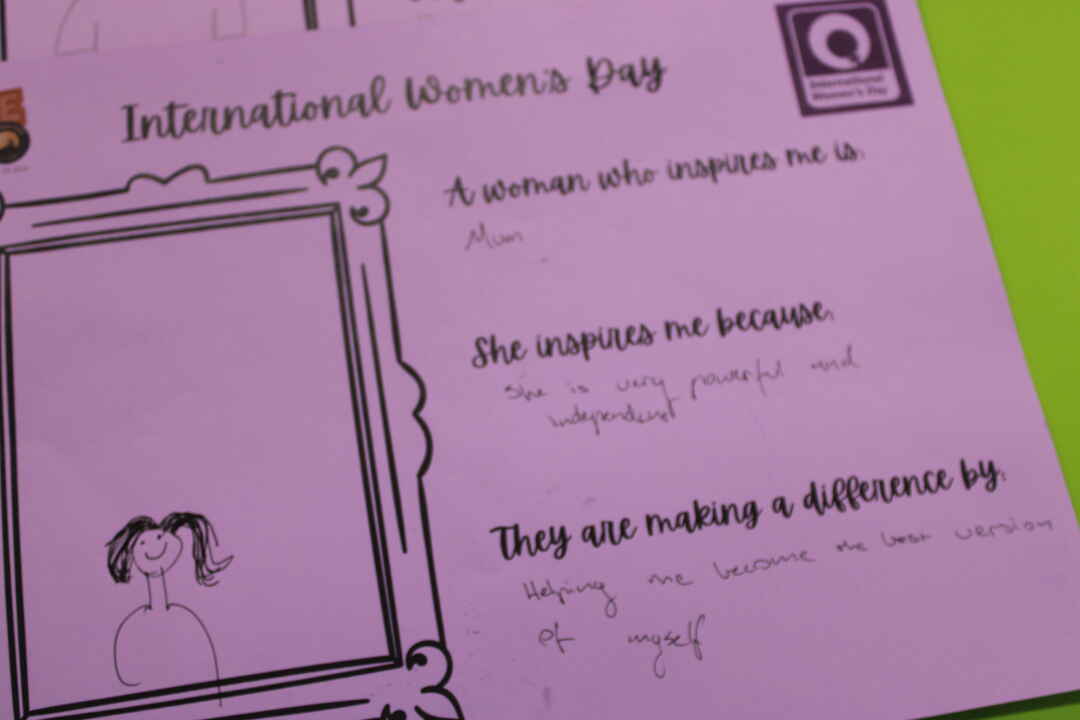 International Women's Day
International
Women's Day
A woman who inspires me is:
Mum
She inspires me because:
She is very powerful and
independent
They are making a difference by:
Helping me become the best version
of myself